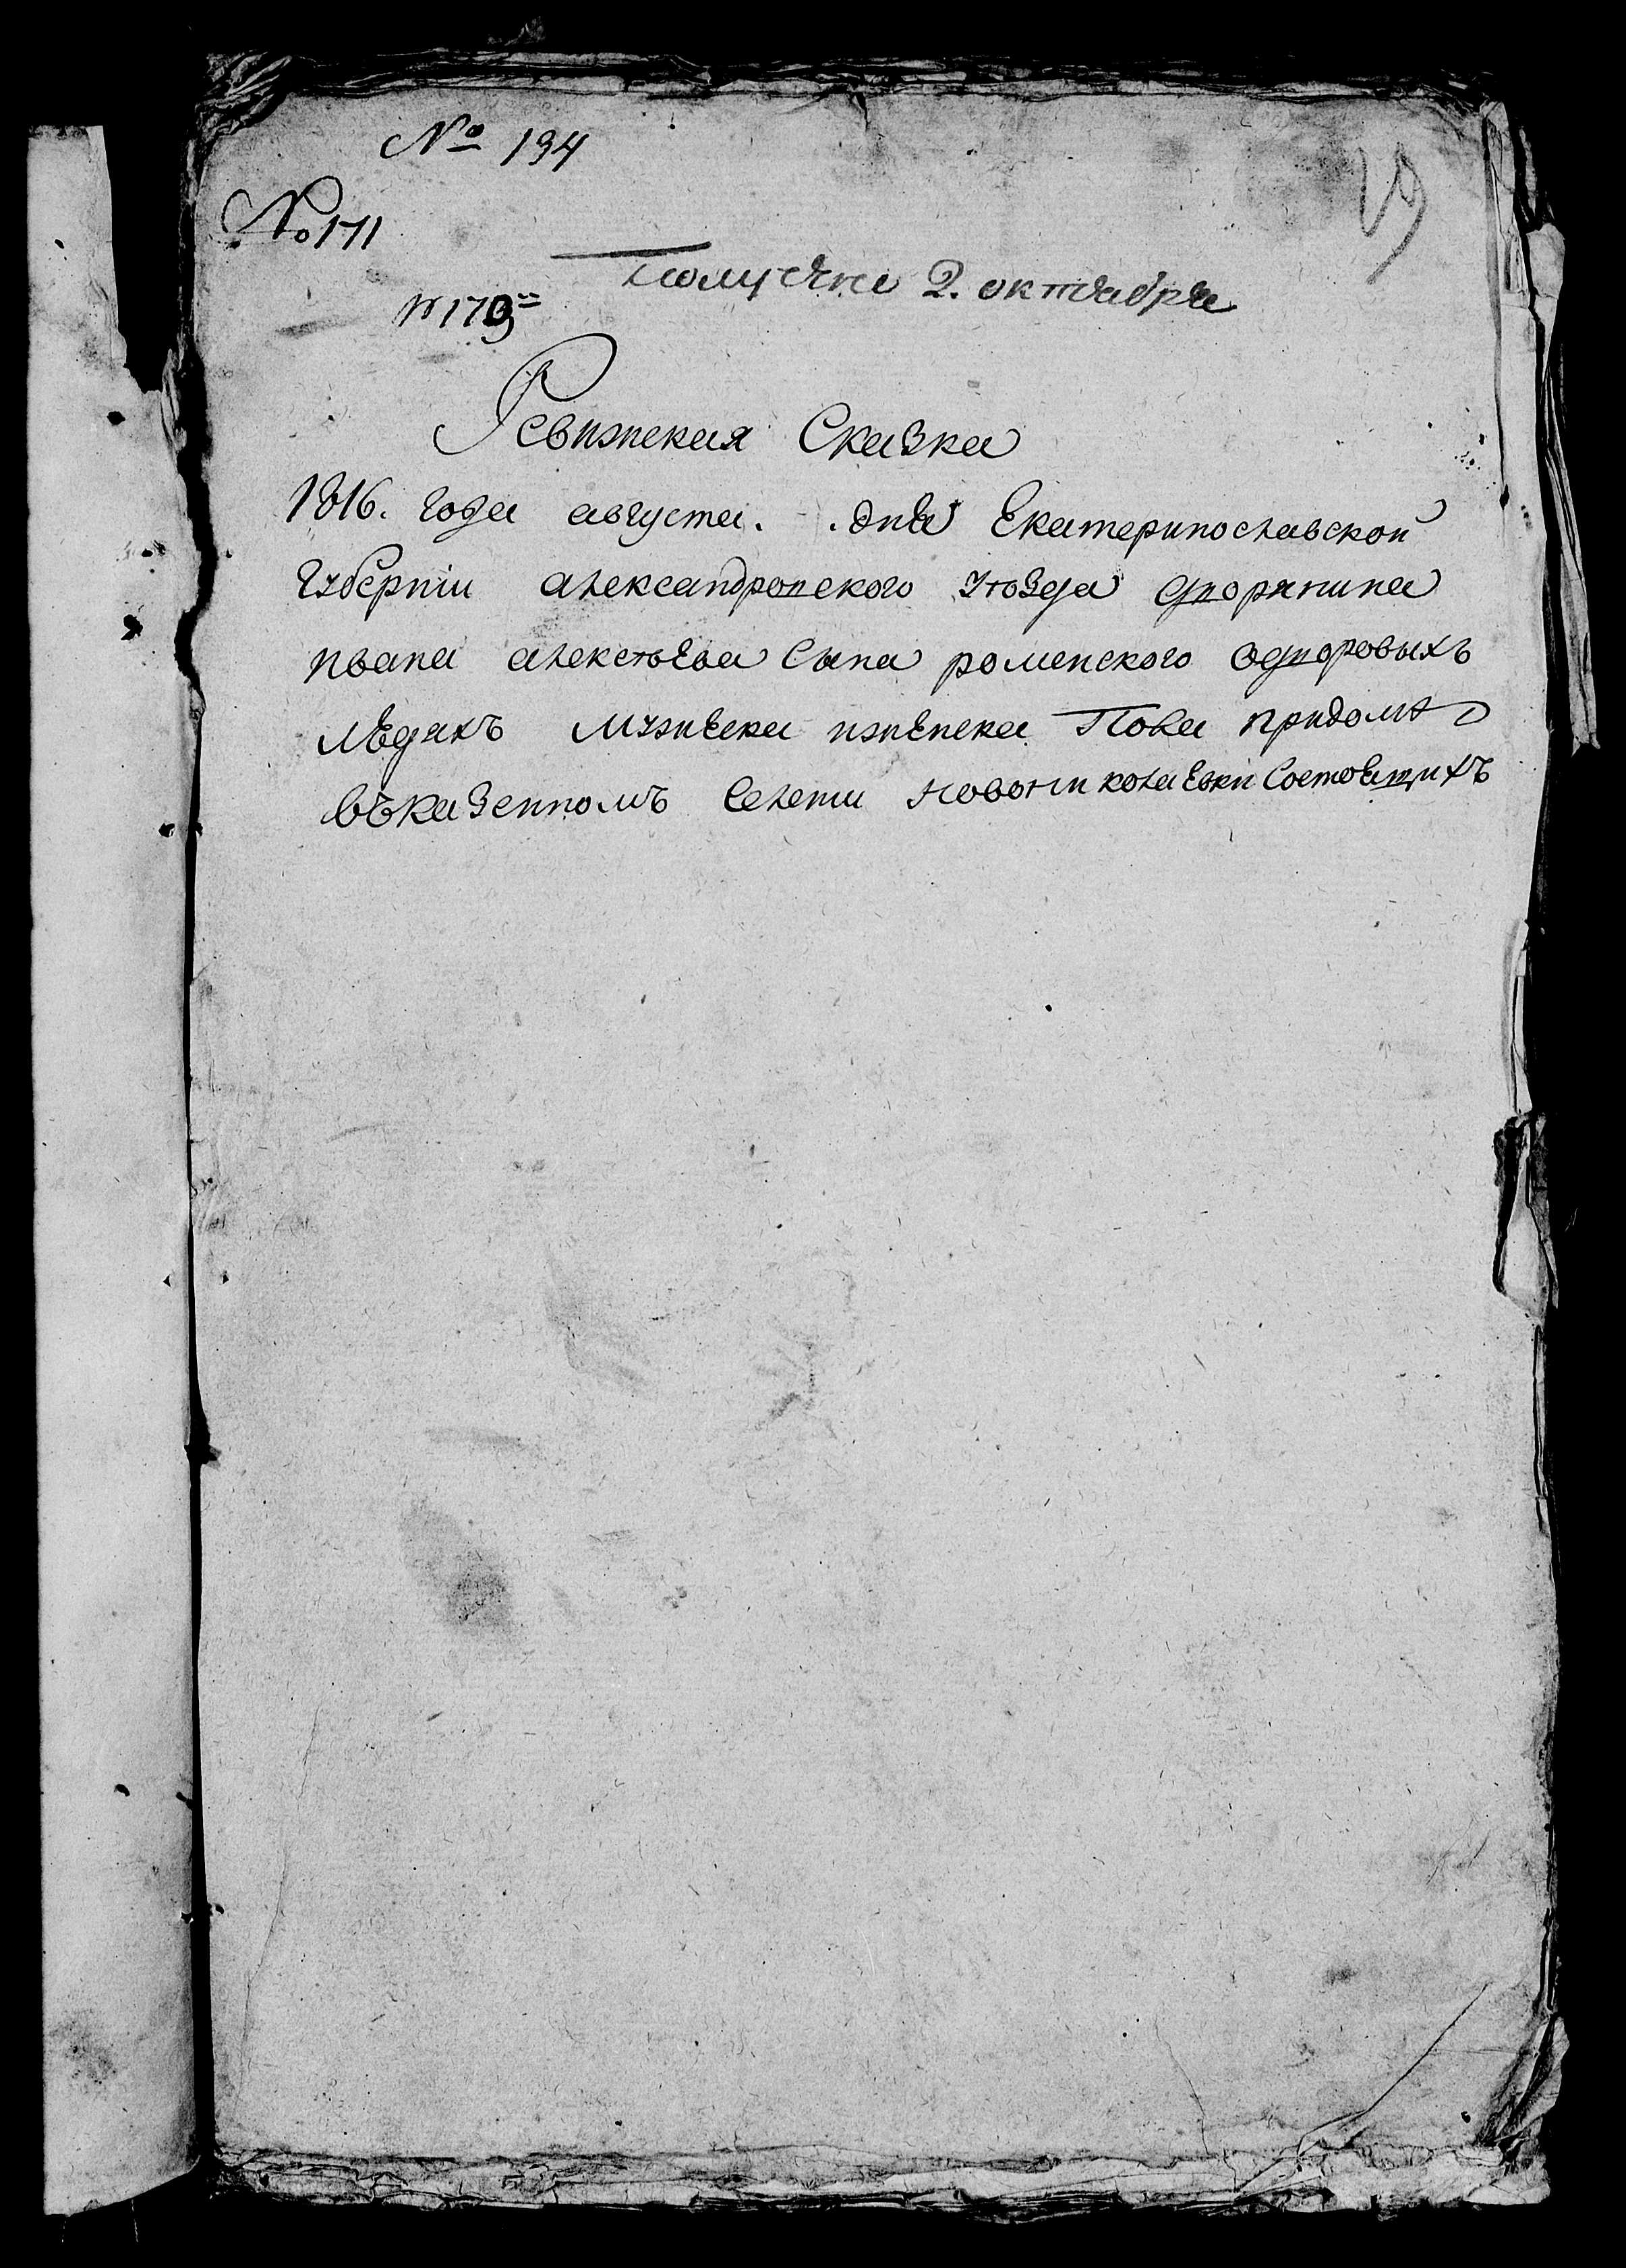 № 194
19
№ 171
№ 173
Получена 2. октебря
Ревижская Сказка
1816. года августа. . дня Екатеринославской
Губерніи александровского уѣзда дворянина
ивана алексѣева Сына роменского одворовыхъ
людяхъ мужеска иженска Пола придомѣ
въказенномъ Селени новони колаевки Состоещихъ